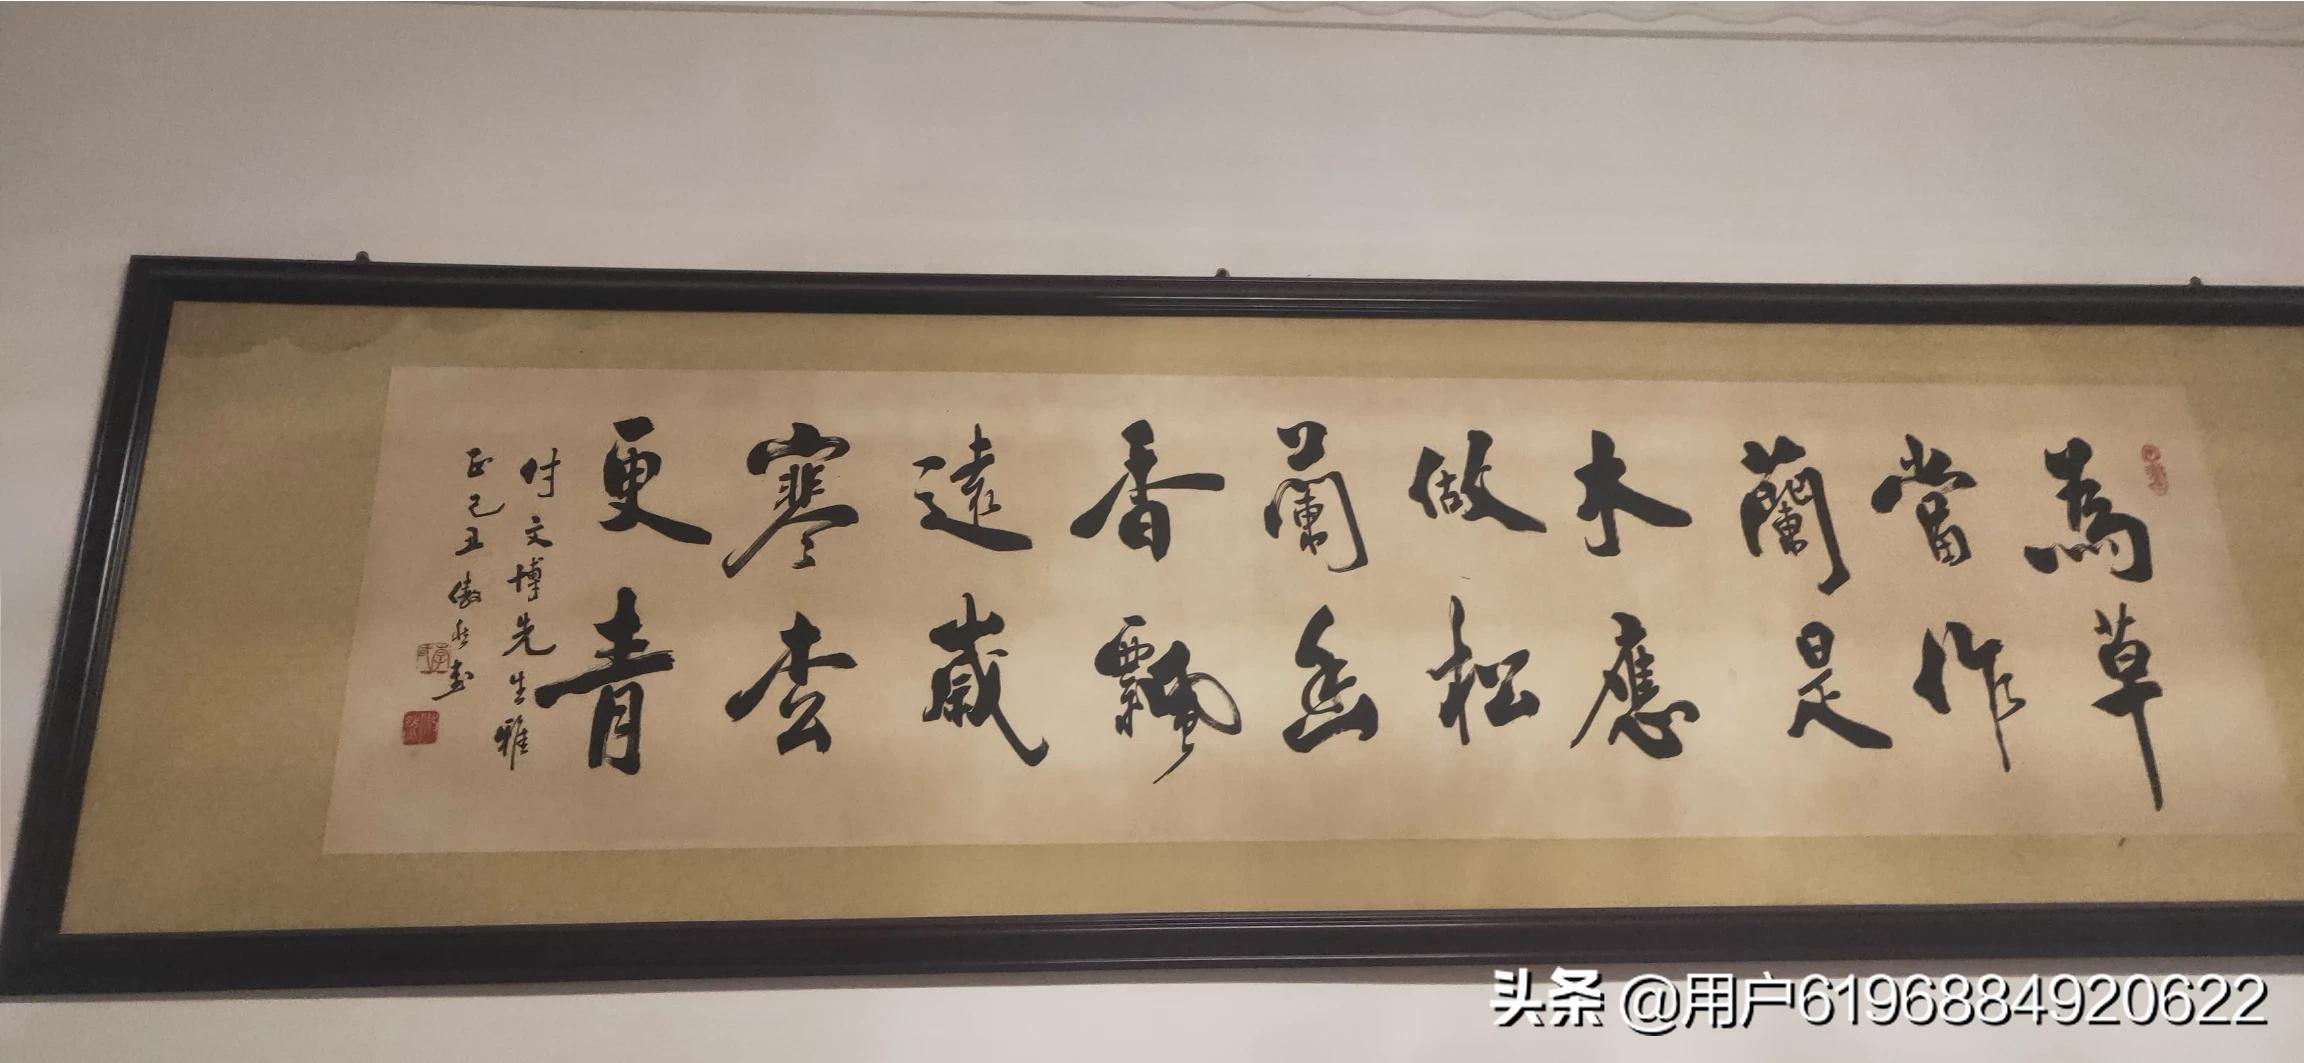 為草
當作
蘭是
木應
做松
蘭幽
香飄
遠歲
寒枩
更青
付文博先生雅
正己丑傲書
头条 @用户6196884920622